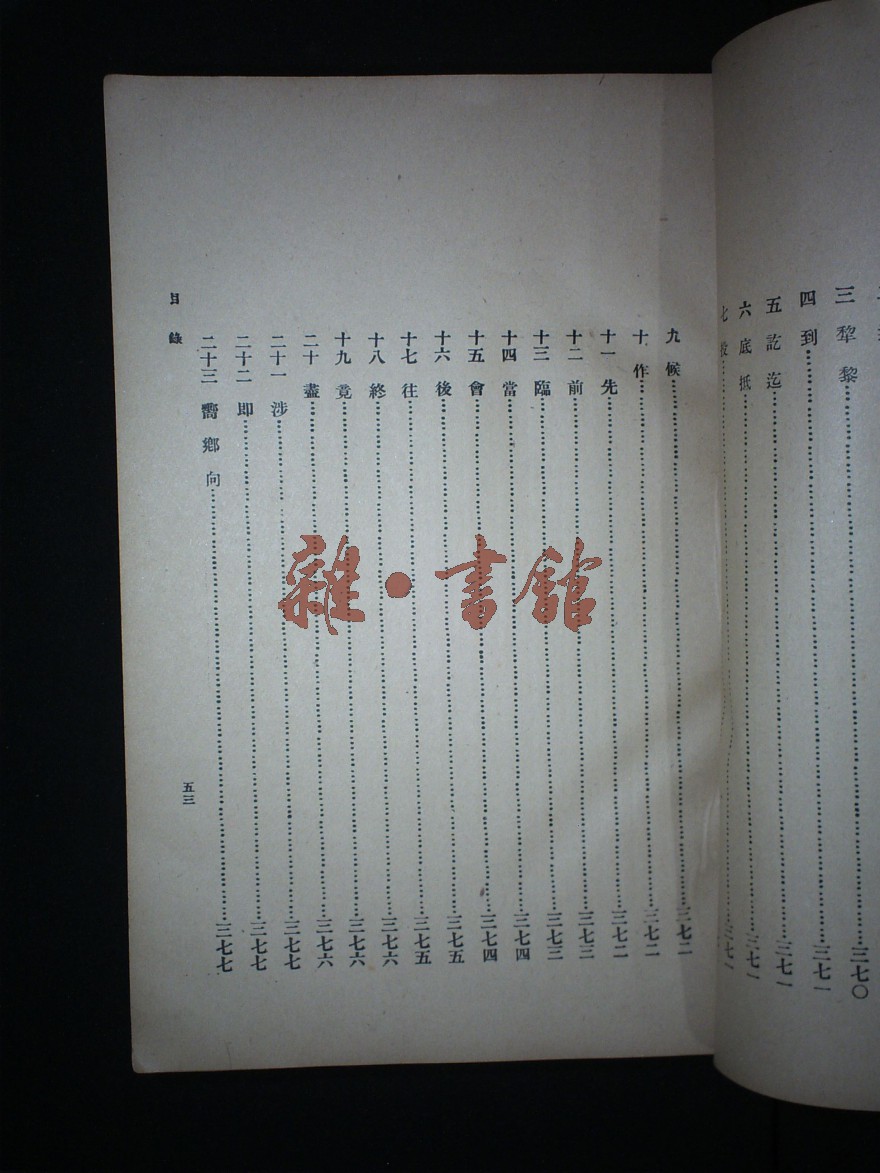 三 犂 黎………三七〇
四 到………三七一
五 訖 迄………三七一
六 底 抵………三七一
七………三七一
九 候………三七二
十 作………三七二
十一 先………三七二
十二 前………三七三
十三 臨………三七三
十四 當………三七四
十五 會………三七四
十六 後………三七五
十七 往………三七五
十八 終………三七六
十九 竟………三七六
二十 盡………三七六
二十一 涉………三七七
二十二 即………三七七
二十三 嚮 鄉 向………三七七
目錄
五三
雜·書館